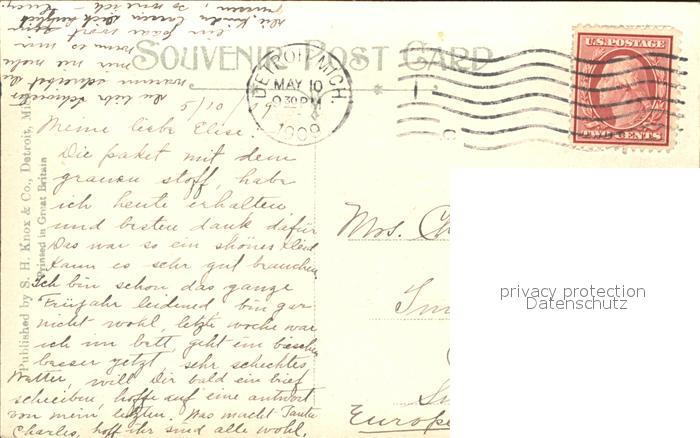 SOUVENIR POST CARD
DETROIT, MICH.
MAY 10
9 30 PM
1909
U.S. POSTAGE
TWO CENTS
5/10/09
Meine liebe Elise.
Die paket mit dem
grauen stoff, habe
ich heute erhalten
und besten dank dafür
Das war so ein shönes Kleid
Kann es sehr gut brauchen
Ich bin schon das ganze
Früjahr leidend bin gar
nicht wohl, letzte woche war
ich im bett, geht ein bischen
besser jetzt, sehr schechtes
Wetter, will Dir bald ein brief
schreiben, hoffe auf eine antwort
von mein letzten. Was macht Tante
Charles, hoff ihr sind alle wohl.
Die kinder lassen Dich
ein paar wort
wenn es nur
mir nie mehr
warum schreibst Du
Du liebe Schwester
Mrs. Ch
Europe
Published by S. H. Knox & Co., Detroit, Mi
Printed in Great Britain
privacy protection
Datenschutz